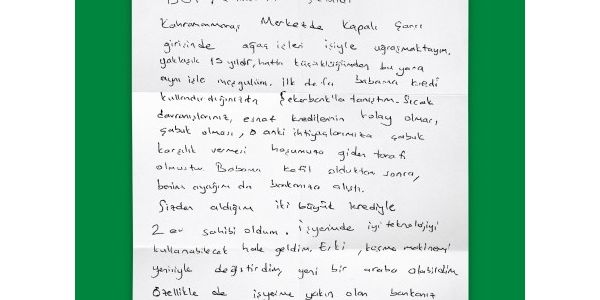 Kahramanmaraş Merkezde Kapalı Çarşı
girişinde ağaç işleri işiyle uğraşmaktayım.
yaklaşık 15 yıldır, hatta küçüklüğümden bu yana
aynı işle meşgulüm. İlk defa babama kredi
kullandırdığınızda Şekerbank'la tanıştım. Sıcak
davranışlarınız, esnaf kredilerinin kolay olması,
çabuk olması, o anki ihtiyaçlarımıza çabuk
karşılık vermesi hoşumuza giden tarafı
olmuştu Babama kefil olduktan sonra,
benim ayağım da bankanıza alıştı.
Sizden aldığım iki büyük krediyle
2 ev sahibi oldum. İşyerimde iyi teknolojiyi
kullanabilecek hale geldim, Eski, kesme makinemi
yenisiyle değiştirdim, yeni bir araba alabildim
Özellikle de işyerime yakın olan bankanız